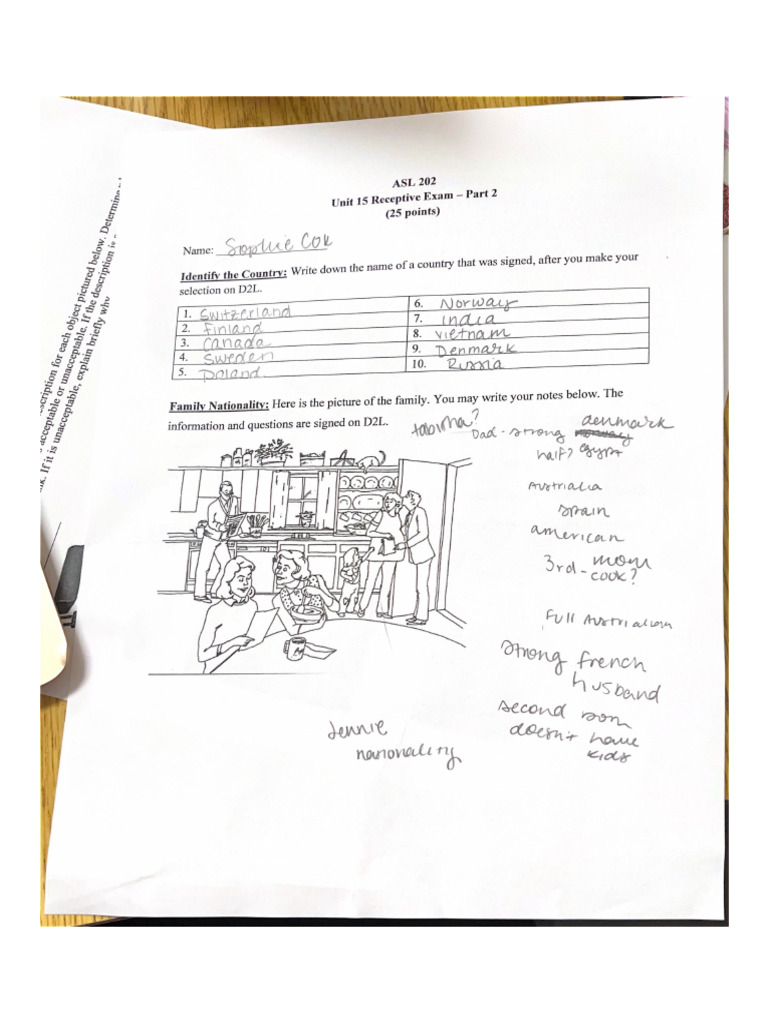 ASL 202
Unit 15 Receptive Exam – Part 2
(25 points)
Name: Sophie Cox
Identify the Country: Write down the name of a country that was signed, after you make your
selection on D2L.
1. Switzerland
2. Finland
3. Canada
4. Sweden
5. Poland
6. Norway
7. India
8. Vietnam
9. Denmark
10. Russia
Family Nationality: Here is the picture of the family. You may write your notes below. The
information and questions are signed on D2L.
tabitha?
Dad - strong denmark
half? egypt
Australia
spain
american
3rd - mom
cook?
Full Australian
strong french
husband
second son
doesn't have
kids
Jennie
nationality
scription for each object pictured below. Determine
acceptable or unacceptable. If the description is
. If it is unacceptable, explain briefly why